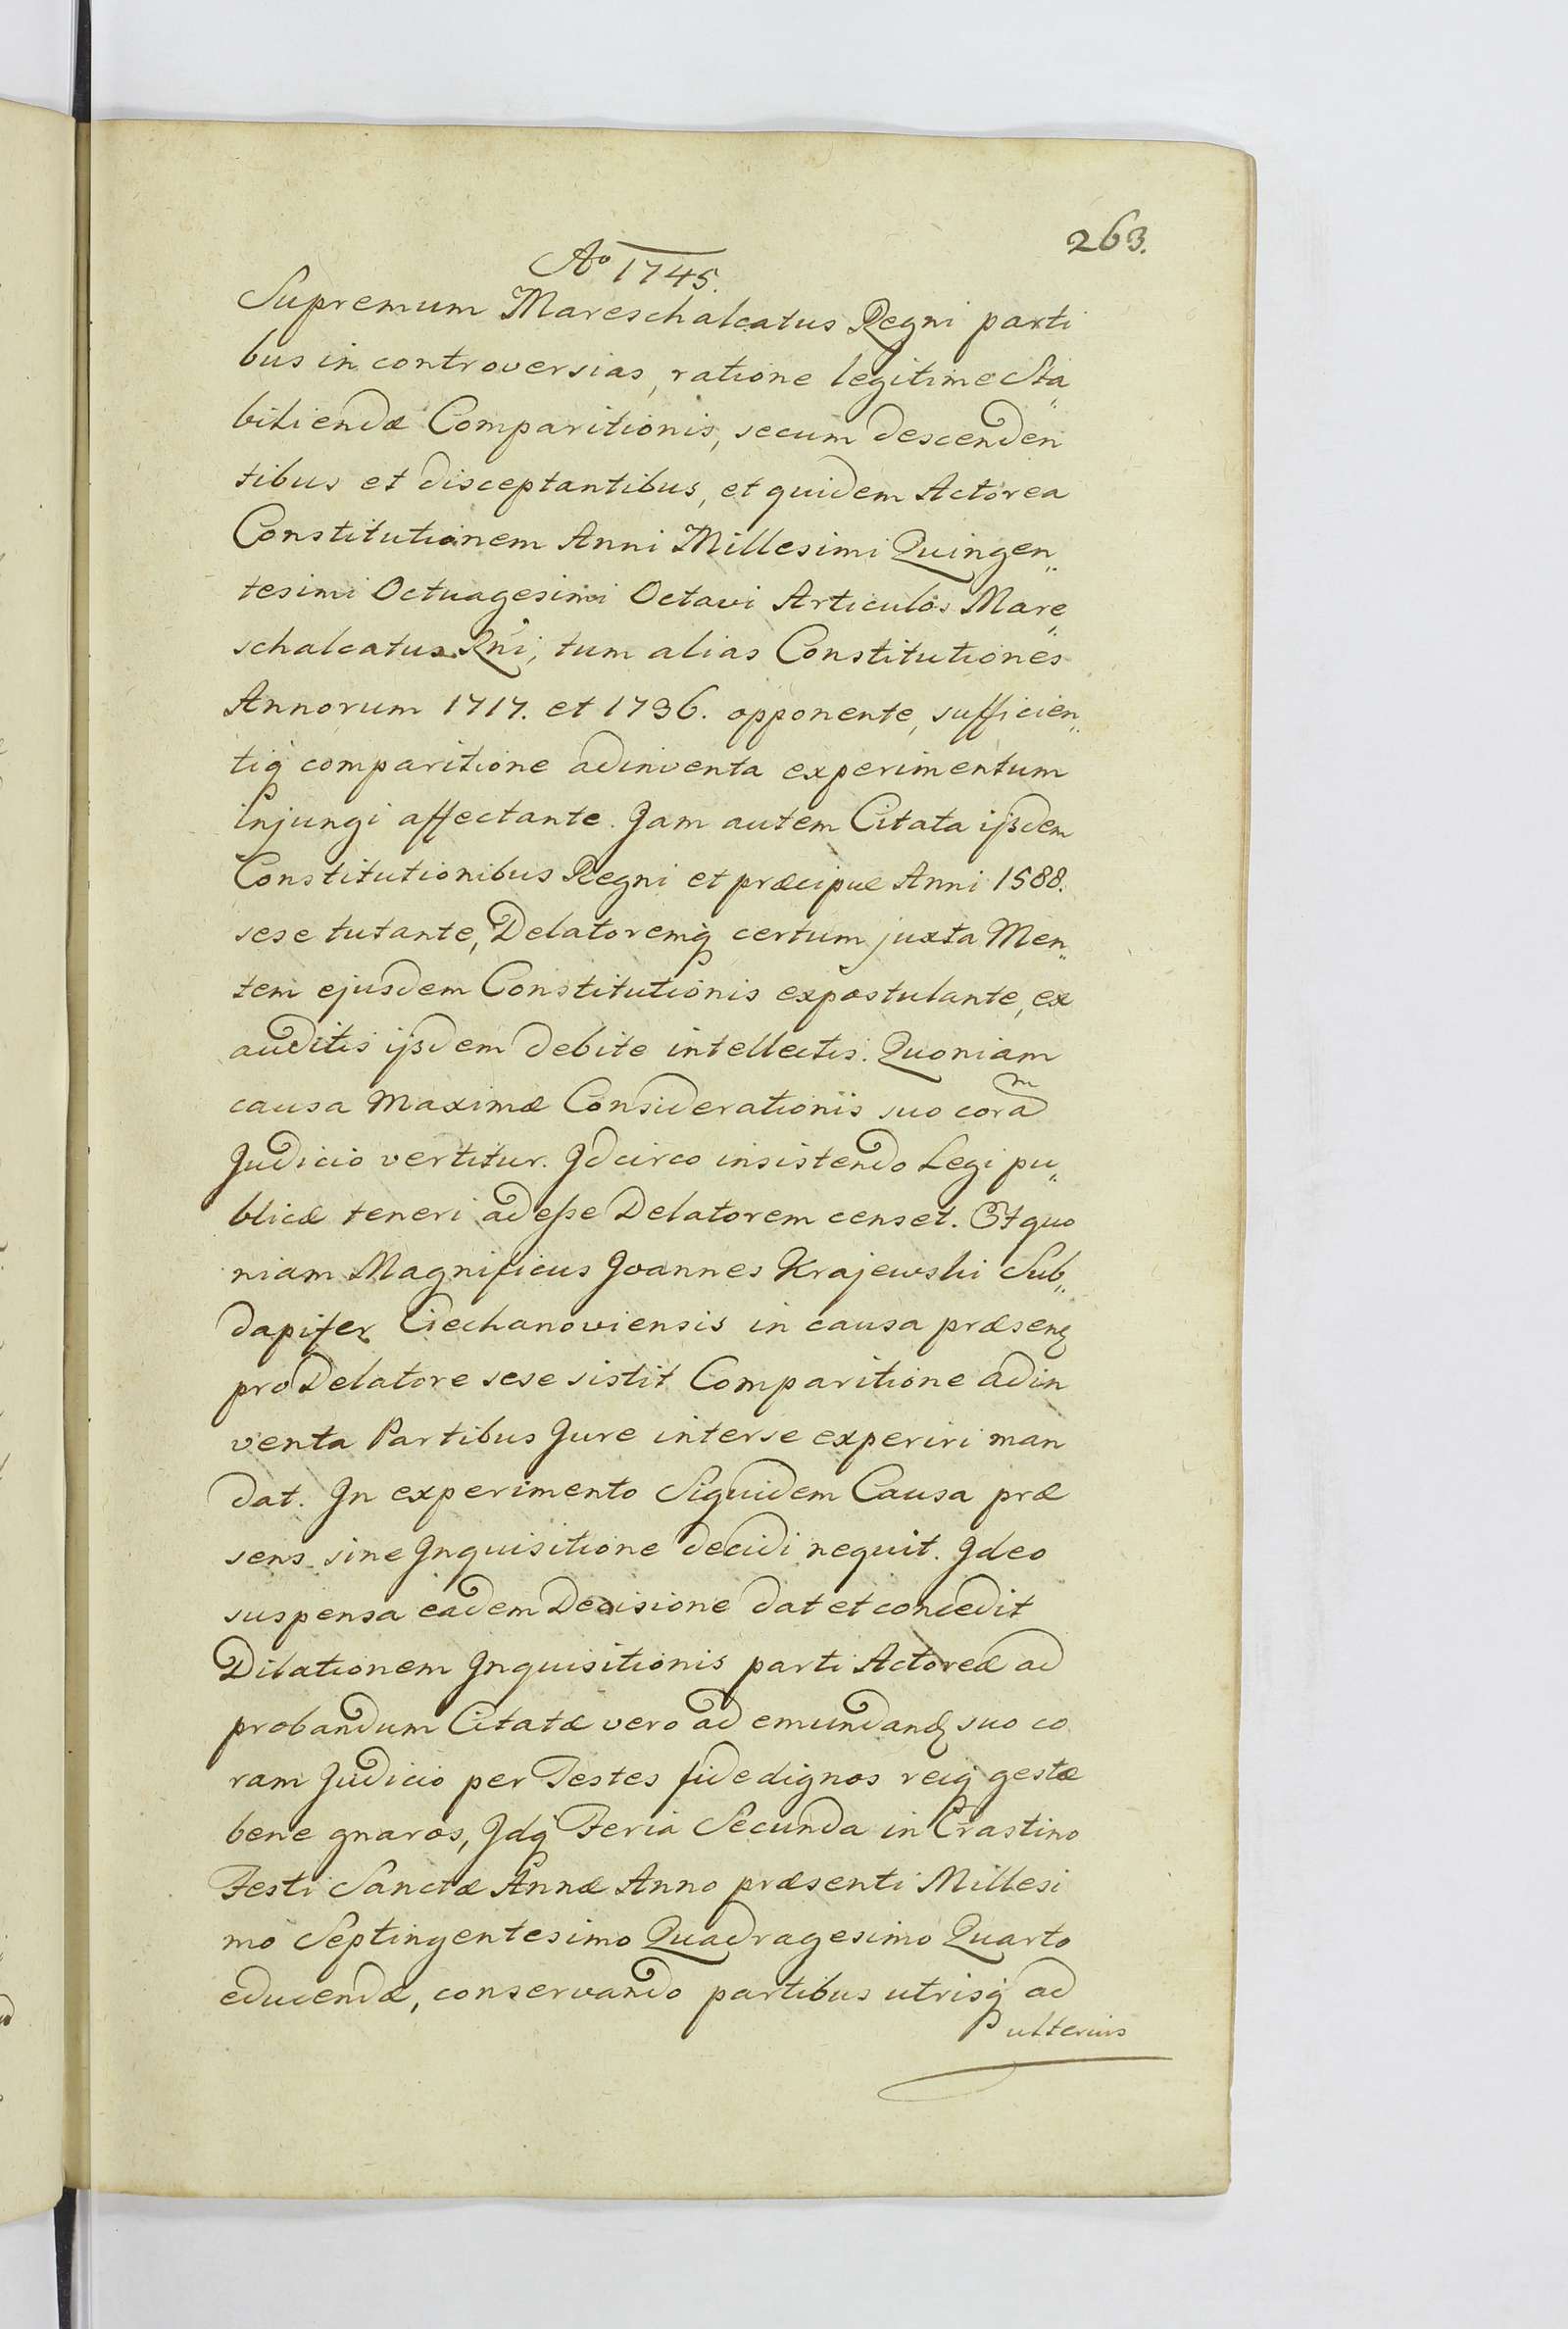 263.
Ao 1745.
Supremum Mareschalcatus Regni parti
bus in controversias, ratione legitime Sta„
biliendæ Comparitionis, secum descenden
tibus et disceptantibus, et quidem Actorea
Constitutionem Anni Millesimi Quingen„
tesimi Octuagesimi Octavi Articulos Mare„
schalcatus Rni, tum alias Constitutiones
Annorum 1717. et 1736. opponente, sufficien„
tiq comparitione adinventa experimentum
injungi affectante. Jam autem Citata ijsdem
Constitutionibus Regni et præcipue Anni 1588.
sese tutante, Delatoremq certum juxta Men„
tem ejusdem Constitutionis expostulante, ex
auditis ijsdem debite intellectis. Quoniam
causa Maximæ Considerationis suo coram
Judicio vertitur. Jdcirco insistendo Legi pu„
blicæ teneri adesse Delatorem censet. Et quo
niam Magnificus Joannes Krajewski Sub„
dapifer Ciechanoviensis in causa præsenq
pro Delatore sese sistit Comparitione adin
venta Partibus Jure interse experiri man
dat. Jn experimento Siquidem Causa præ
sens sine Jnquisitione decidi nequit. Jdeo
suspensa eadem Decisione dat et concedit
Dilationem Jnquisitionis parti Actoreæ ad
probandum Citatæ vero ad emundanq suo co
ram Judicio per Testes fide dignos reiq gestæ
bene gnaros, Jdq Feria Secunda in Crastino
Festi Sanctæ Annæ Anno præsenti Millesi
mo Septingentesimo Quadragesimo Quarto
educendæ, conservando partibus utrisq ad
ulterius